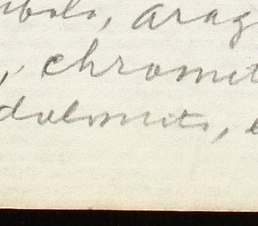 ibole, arag
, chromit
dolomite,